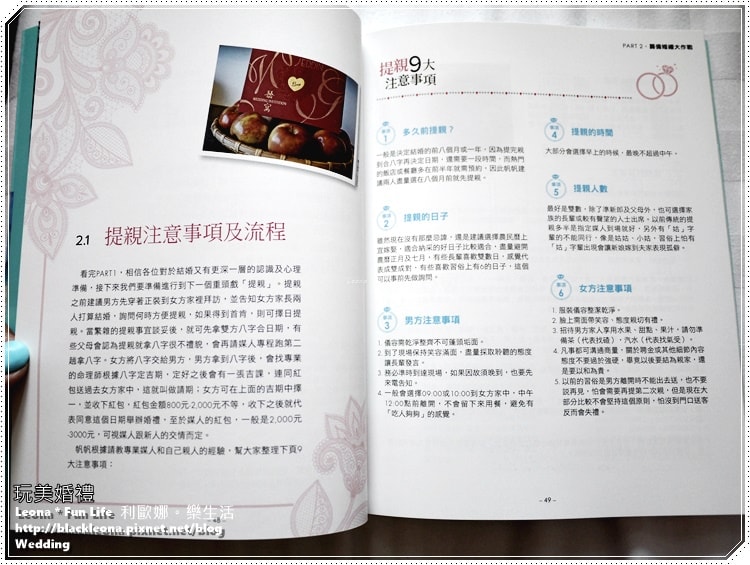 WEDDING INVITATION
2.1 提親注意事項及流程
看完PART1，相信各位對於結婚又有更深一層的認識及心理
準備，接下來我們要準備進行到下一個重頭戲「提親」。提親
之前建議男方先穿著正裝到女方家裡拜訪，並告知女方家長兩
人打算結婚，詢問何時方便提親，如果得到首肯，則可擇日提
親。當繁雜的提親事宜談妥後，就可先拿雙方八字合日期，有
些父母會認為提親就拿八字很不禮貌，會再請媒人專程跑第二
趟拿八字。女方將八字交給男方，男方拿到八字後，會找專業
的命理師根據八字定吉期，定好之後會有一張吉課，連同紅
包送過去女方家中，這就叫做請期；女方可在上面的吉期中擇
一，並收下紅包，紅包金額800元-2,000元不等，收下之後就代
表同意這個日期舉辦婚禮，至於媒人的紅包，一般是2,000元
-3000元，可視媒人跟新人的交情而定。
帆帆根據請教專業媒人和自己親人的經驗，幫大家整理下頁9
大注意事項：
PART 2 · 籌備婚禮大作戰
提親9大
注意事項
1 多久前提親？
一般是決定結婚的前八個月或一年，因為提完親
到合八字再決定日期，還需要一段時間，而熱門
的飯店或餐廳多在前半年就需預約，因此帆帆建
議兩人盡量選在八個月前就先提親。
2 提親的日子
雖然現在沒有那麼忌諱，還是建議選擇農民曆上
宜嫁娶，適合納采的好日子比較適合，盡量避開
農曆正月及七月，有些長輩喜歡雙數日，感覺代
表成雙成對，有些喜歡習俗上有6的日子，這個
可以事前先做詢問。
3 男方注意事項
1. 儀容需乾淨整齊不可蓬頭垢面。
2. 到了現場保持笑容滿面，盡量採取聆聽的態度
讓長輩發言。
3. 務必準時到達現場，如果因故須晚到，也要先
來電告知。
4. 一般會選擇09:00或10:00到女方家中，中午
12:00點前離開，不會留下來用餐，避免有
「吃人夠夠」的感覺。
4 提親的時間
大部分會選擇早上的時候，最晚不超過中午。
5 提親人數
最好是雙數，除了準新郎及父母外，也可選擇家
族的長輩或較有聲望的人士出席。以前傳統的提
親多半是指定媒人到場就好，另外有「姑」字
輩的不能同行，像是姑姑、小姑，習俗上怕有
「姑」字輩出現會讓新娘嫁到夫家表現孤僻。
6 女方注意事項
1. 服裝儀容整潔乾淨。
2. 臉上需面帶笑容、態度親切有禮。
3. 招待男方家人享用水果、甜點、果汁，請勿準
備茶（代表找碴），汽水（代表找氣受）。
4. 凡事都可溝通商量，關於聘金或其他細節內容
態度不要過於強硬，畢竟以後要結為親家，還
是要以和為貴。
5. 以前的習俗是男方離開時不能出去送，也不要
說再見，怕會需要再提第二次親，但是現在大
部分比較不會堅持這個原則，怕沒到門口送客
反而會失禮。
- 49 -
玩美婚禮
Leona * Fun Life 利歐娜。樂生活
http://blackleona.pixnet.net/blog
Wedding